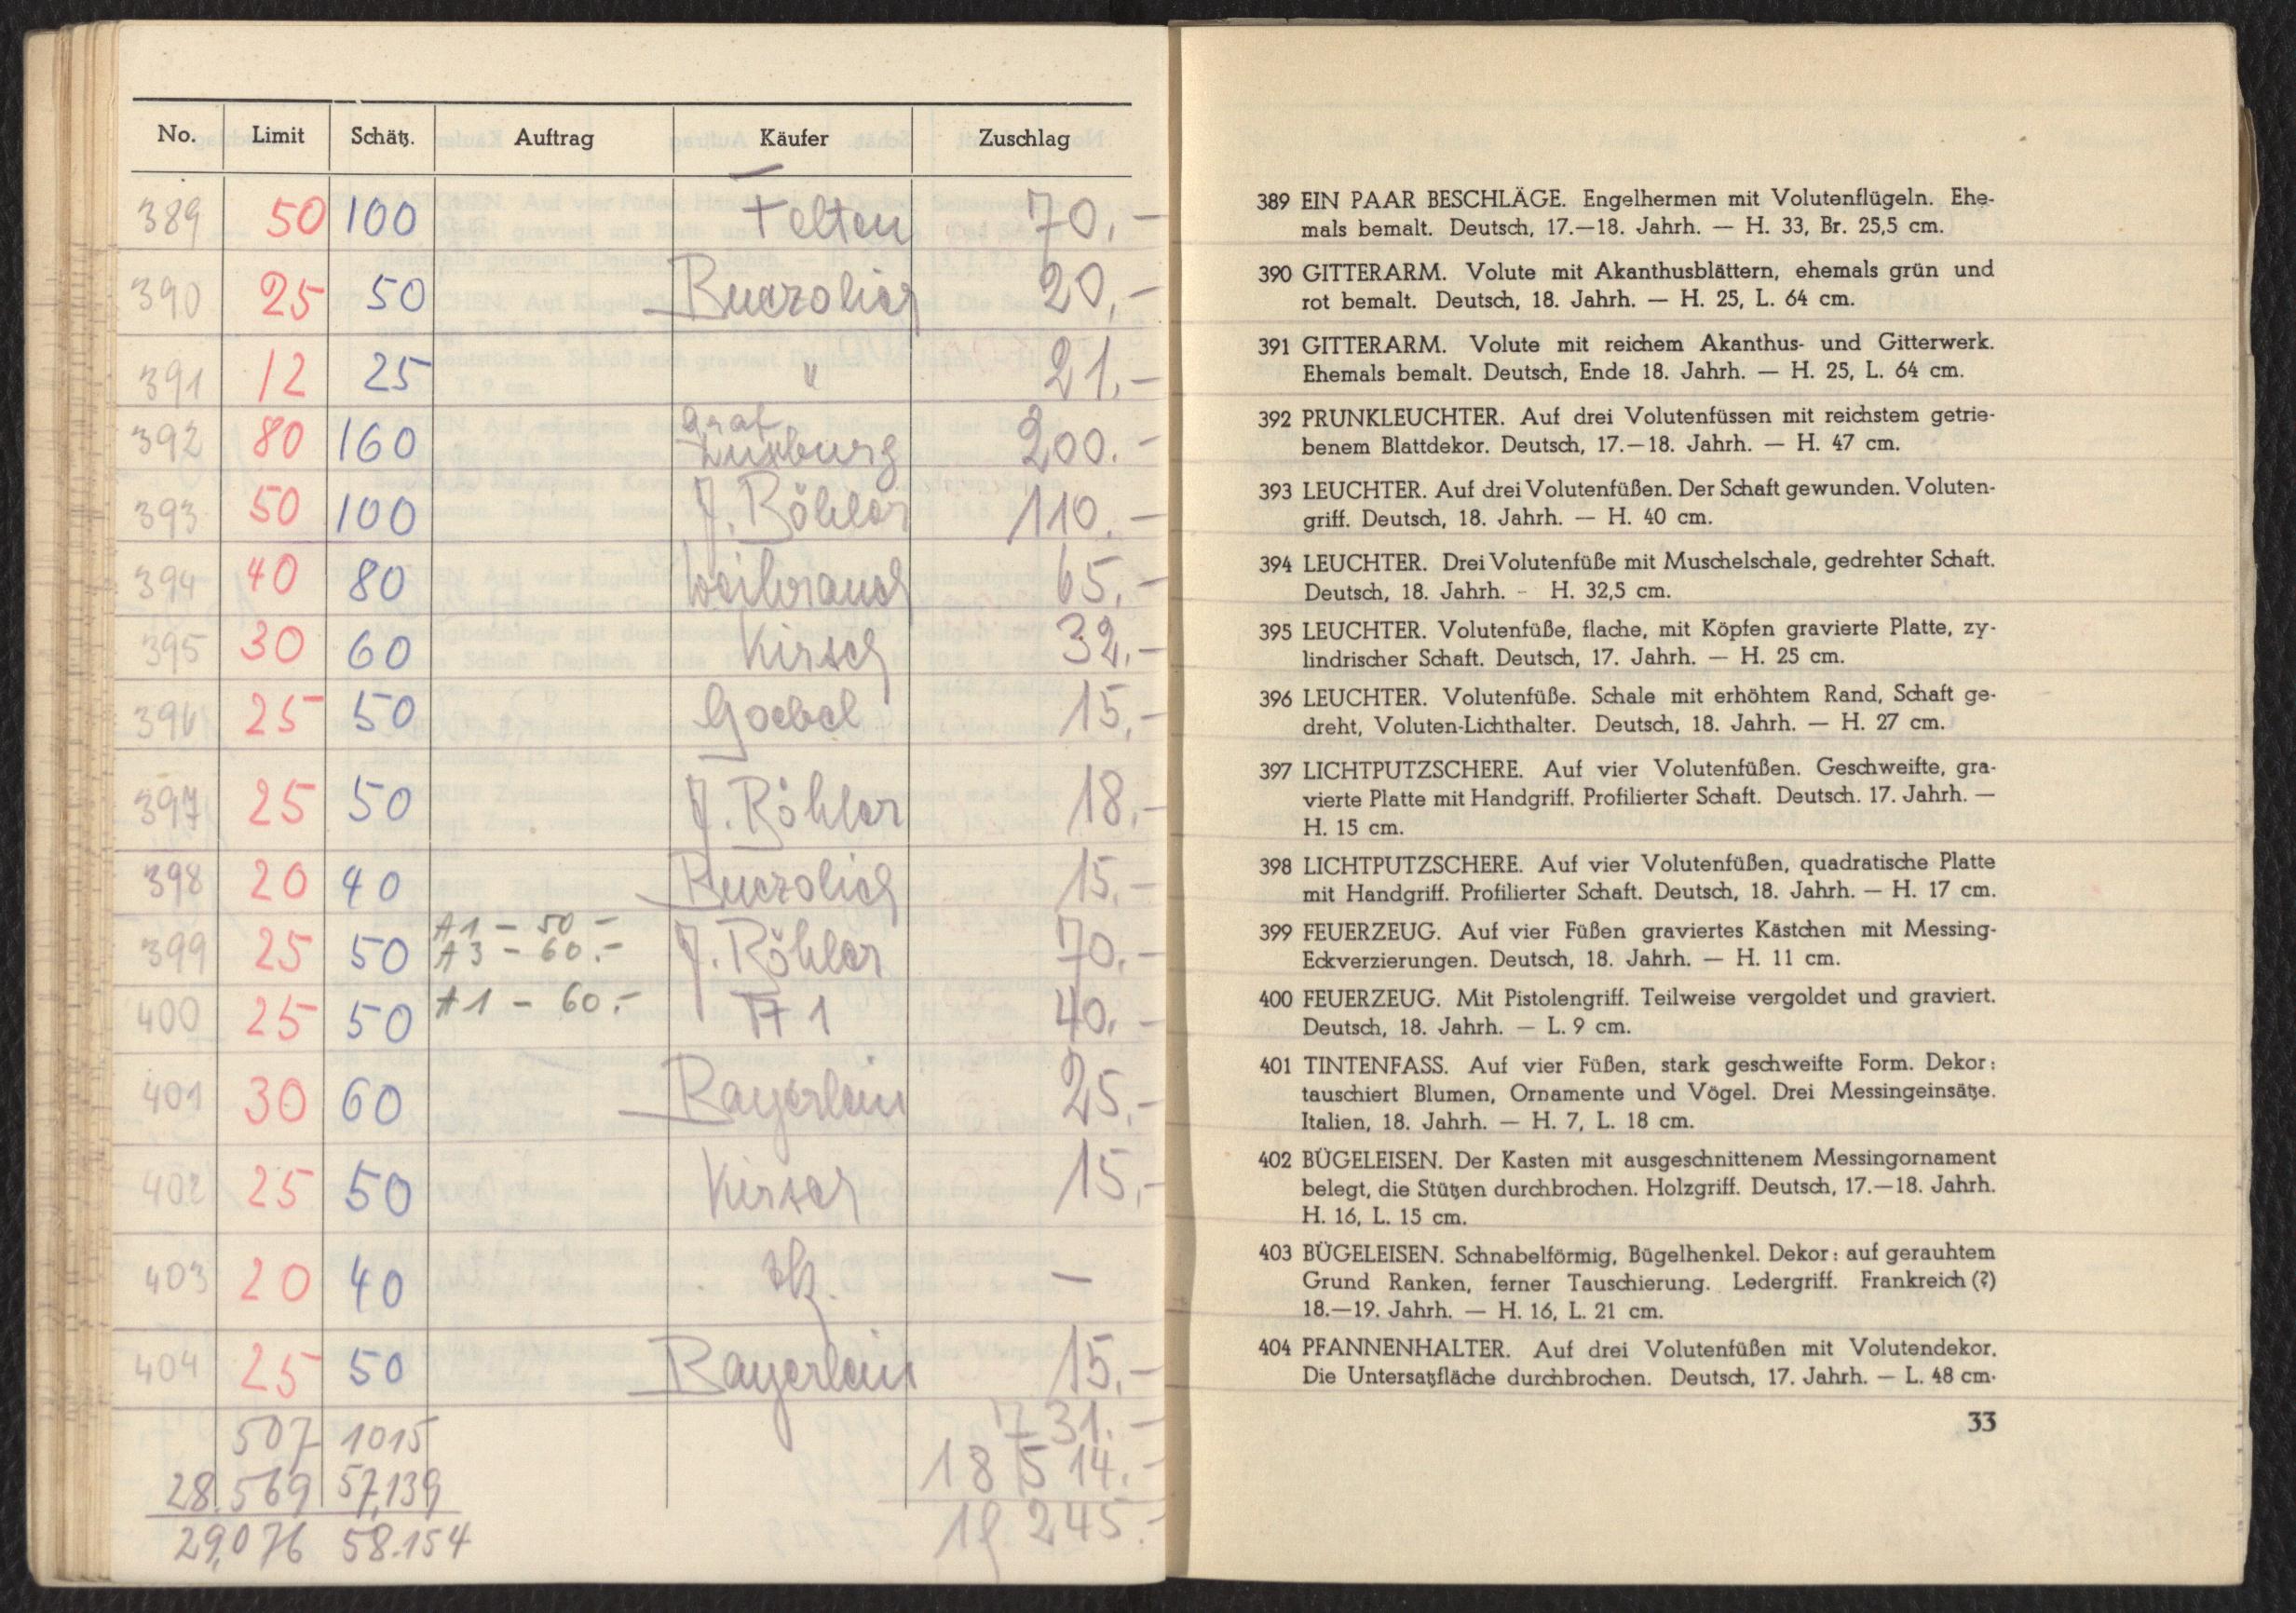 No. Limit Schätz. Auftrag Käufer Zuschlag
389 50 100 Felten 70,-
390 25 50 20,-
391 12 25 " 21,-
392 80 160 Graf Luxburg 200.-
393 50 100 J. Böhler 110.-
394 40 80 65,-
395 30 60 Kirsch 32,-
396 25 50 Goebel 15,-
397 25 50 J. Böhler 18,-
398 20 40 15,-
399 25 50 A1 - 50 - J. Böhler 70.-
A3 - 60.-
400 25 50 A1 - 60.- A 1 40.-
401 30 60 Bayerlein 25,-
402 25 50 Kirsch 15,-
403 20 40 —
404 25 50 Bayerlein 15,-
507 1015 731.-
28.569 57,139 18 514.-
29,076 58.154 19 245.-
389 EIN PAAR BESCHLÄGE. Engelhermen mit Volutenflügeln. Ehe-
mals bemalt. Deutsch, 17.—18. Jahrh. — H. 33, Br. 25,5 cm.
390 GITTERARM. Volute mit Akanthusblättern, ehemals grün und
rot bemalt. Deutsch, 18. Jahrh. — H. 25, L. 64 cm.
391 GITTERARM. Volute mit reichem Akanthus- und Gitterwerk.
Ehemals bemalt. Deutsch, Ende 18. Jahrh. — H. 25, L. 64 cm.
392 PRUNKLEUCHTER. Auf drei Volutenfüssen mit reichstem getrie-
benem Blattdekor. Deutsch, 17.—18. Jahrh. — H. 47 cm.
393 LEUCHTER. Auf drei Volutenfüßen. Der Schaft gewunden. Voluten-
griff. Deutsch, 18. Jahrh. — H. 40 cm.
394 LEUCHTER. Drei Volutenfüße mit Muschelschale, gedrehter Schaft.
Deutsch, 18. Jahrh. - H. 32,5 cm.
395 LEUCHTER. Volutenfüße, flache, mit Köpfen gravierte Platte, zy-
lindrischer Schaft. Deutsch, 17. Jahrh. — H. 25 cm.
396 LEUCHTER. Volutenfüße. Schale mit erhöhtem Rand, Schaft ge-
dreht, Voluten-Lichthalter. Deutsch, 18. Jahrh. — H. 27 cm.
397 LICHTPUTZSCHERE. Auf vier Volutenfüßen. Geschweifte, gra-
vierte Platte mit Handgriff. Profilierter Schaft. Deutsch. 17. Jahrh. —
H. 15 cm.
398 LICHTPUTZSCHERE. Auf vier Volutenfüßen, quadratische Platte
mit Handgriff. Profilierter Schaft. Deutsch, 18. Jahrh. — H. 17 cm.
399 FEUERZEUG. Auf vier Füßen graviertes Kästchen mit Messing-
Eckverzierungen. Deutsch, 18. Jahrh. — H. 11 cm.
400 FEUERZEUG. Mit Pistolengriff. Teilweise vergoldet und graviert.
Deutsch, 18. Jahrh. — L. 9 cm.
401 TINTENFASS. Auf vier Füßen, stark geschweifte Form. Dekor:
tauschiert Blumen, Ornamente und Vögel. Drei Messingeinsätze.
Italien, 18. Jahrh. — H. 7, L. 18 cm.
402 BÜGELEISEN. Der Kasten mit ausgeschnittenem Messingornament
belegt, die Stützen durchbrochen. Holzgriff. Deutsch, 17.—18. Jahrh.
H. 16, L. 15 cm.
403 BÜGELEISEN. Schnabelförmig, Bügelhenkel. Dekor: auf gerauhtem
Grund Ranken, ferner Tauschierung. Ledergriff. Frankreich (?)
18.—19. Jahrh. — H. 16, L. 21 cm.
404 PFANNENHALTER. Auf drei Volutenfüßen mit Volutendekor.
Die Untersatzfläche durchbrochen. Deutsch, 17. Jahrh. — L. 48 cm.
33